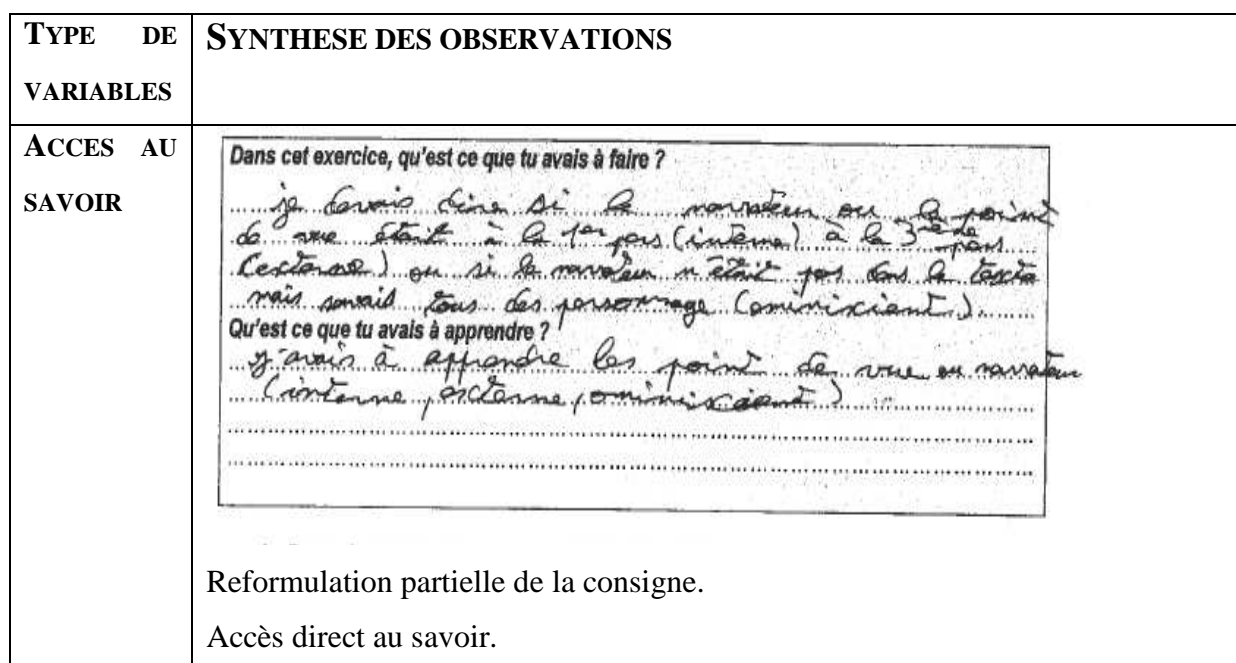 TYPE DE VARIABLES
SYNTHESE DES OBSERVATIONS
ACCES AU SAVOIR
Dans cet exercice, qu'est ce que tu avais à faire ?
je devais dire si le narrateur ou le point
de vue était à la 1er pers (interne) à la 3ème de pers
(externe) ou si le narrateur n'était pas dans le texte
mais savais tous des personnage (ominixient).
Qu'est ce que tu avais à apprendre ?
j'avais à apprendre les point de vue ou narrateur
(interne, externe, ominixient)
Reformulation partielle de la consigne.
Accès direct au savoir.